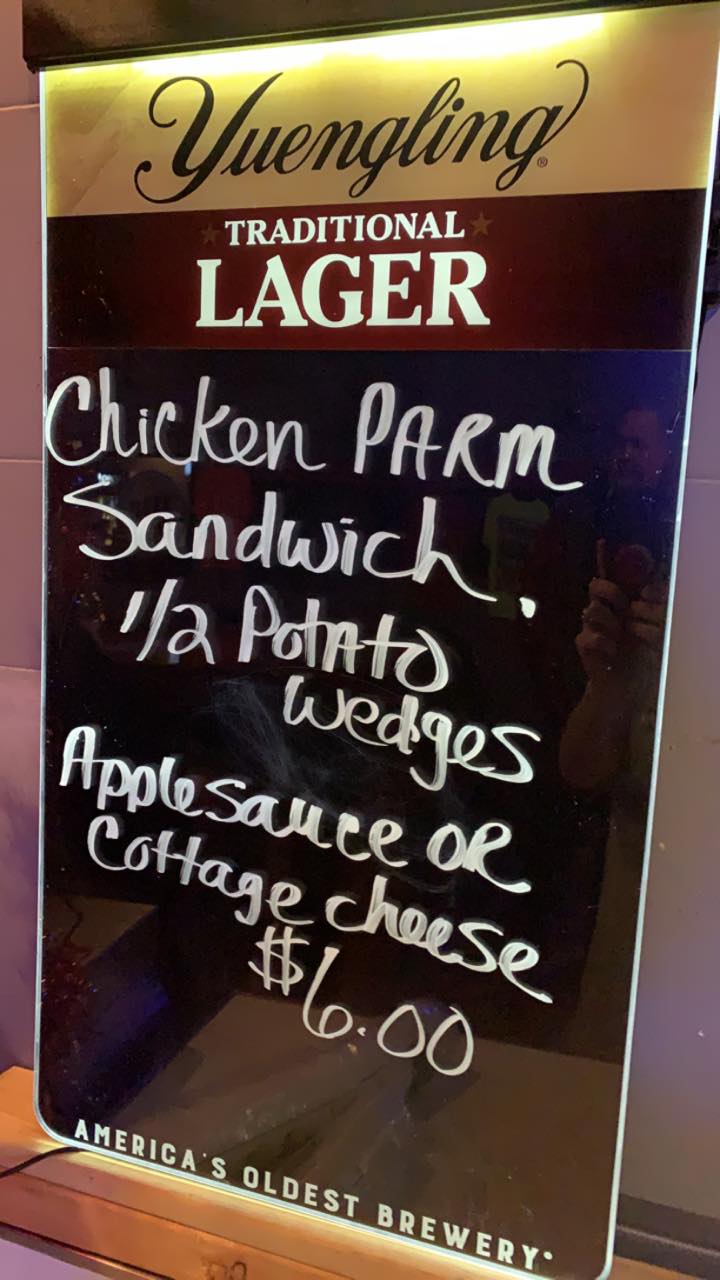 Yuengling®
TRADITIONAL
LAGER
Chicken PARM
Sandwich,
1/2 Potato
wedges
Applesauce OR
Cottage cheese
$6.00
AMERICA'S OLDEST BREWERY®